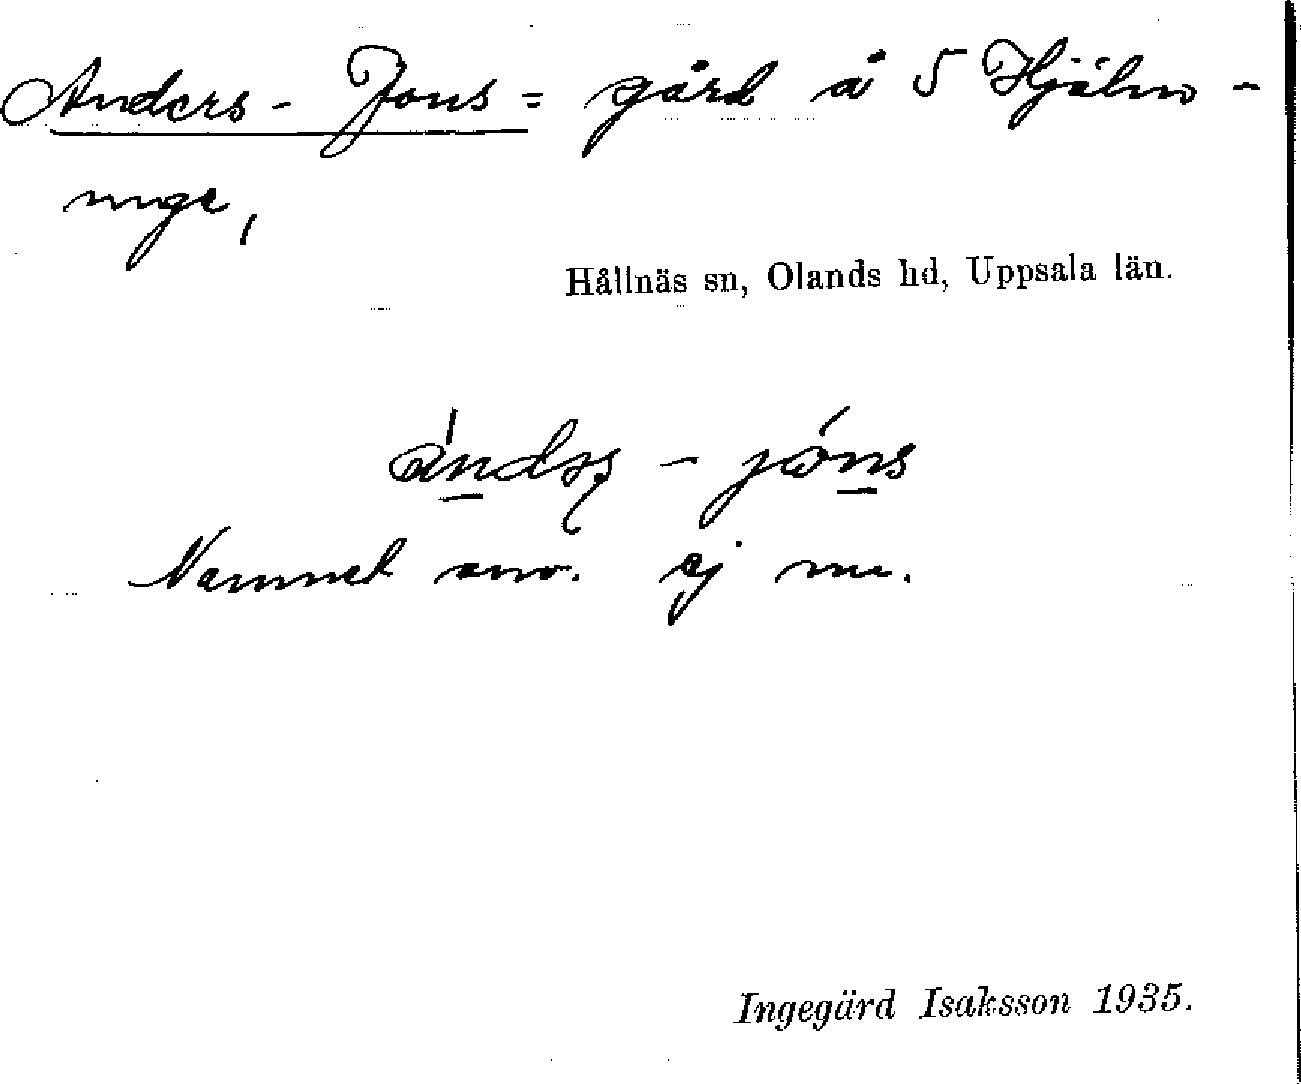 Anders-Jons = gård å 5 Hjälm-
unge,
Hållnäs sn, Olands hd, Uppsala län.
ándɹs - jóns
Namnet anv. ej nu.
Ingegärd Isaksson 1935.